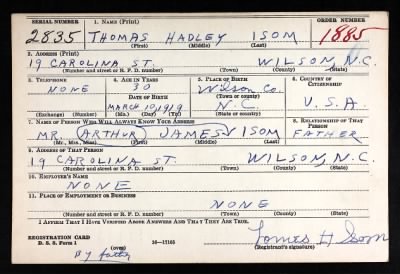 SERIAL NUMBER 1. NAME (Print) ORDER NUMBER
2835 THOMAS HADLEY ISOM 1885
(First) (Middle) (Last)
2. ADDRESS (Print)
19 CAROLINA ST. WILSON, N.C.
(Number and street or R. F. D. number) (Town) (County) (State)
3. TELEPHONE 4. AGE IN YEARS 5. PLACE OF BIRTH 6. COUNTRY OF CITIZENSHIP
NONE 30 Wilson Co.
DATE OF BIRTH
MARCH 10, 1919 N.C. U.S.A.
(Exchange) (Number) (Mo.) (Day) (Yr.) (State or country)
7. NAME OF PERSON WHO WILL ALWAYS KNOW YOUR ADDRESS 8. RELATIONSHIP OF THAT PERSON
MR. ARTHUR JAMES ISOM FATHER
(Mr., Mrs., Miss) (First) (Middle) (Last)
9. ADDRESS OF THAT PERSON
19 CAROLINA ST. WILSON, N.C.
(Number and street or R. F. D. number) (Town) (County) (State)
10. EMPLOYER'S NAME
NONE
11. PLACE OF EMPLOYMENT OR BUSINESS
NONE
(Number and street or R. F. D. number) (Town) (County) (State)
I AFFIRM THAT I HAVE VERIFIED ABOVE ANSWERS AND THAT THEY ARE TRUE.
REGISTRATION CARD
D. S. S. Form 1 16—17105
(over) (Registrant's signature)
By father